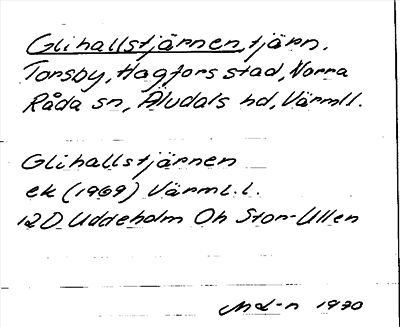 Glihallstjärnen, tjärn.
Torsby, Hagfors stad, Norra
Råda sn, Älvdals hd, Värml l.
Glihallstjärnen
ek (1969) Värml. l.
12D Uddeholm Oh Stor-Ullen
Md-n 1970